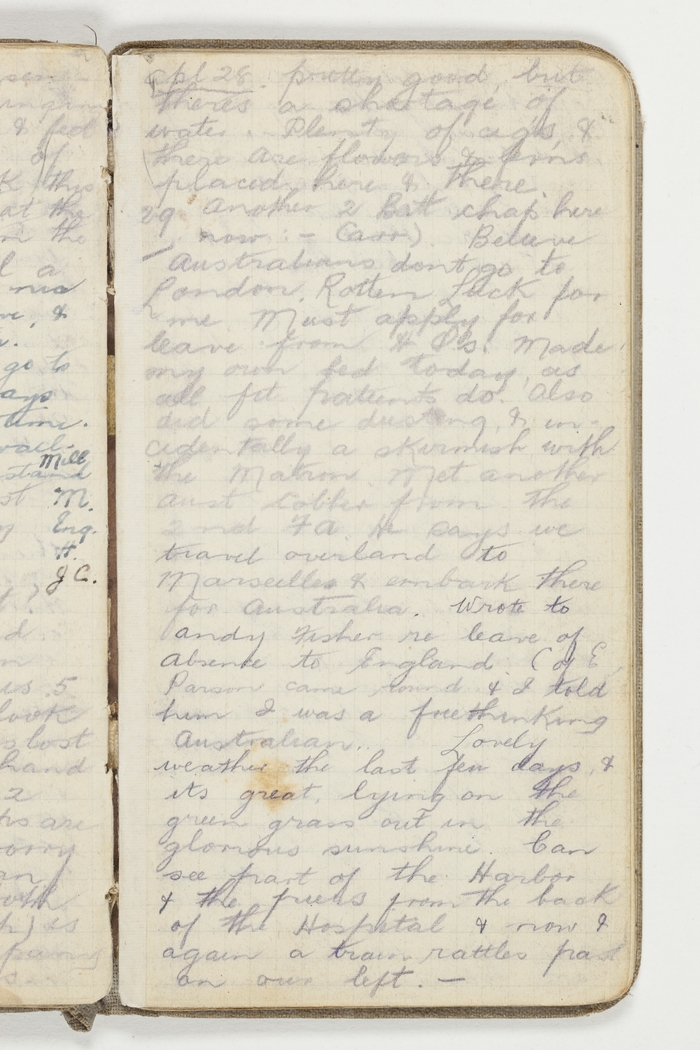 sent
& fed
of
K this
at the
in the
l a
go to
ays
time.
Mill
stand
M.
Eng.
H.
J.C.
d.
us 5
look
lost
hand
2
are
worry
an
is
Apl 28. pretty good, but
theres a shortage of
water. Plenty of cigs &
there are flowers & ferns
placed here & there.
29. Another 2 Batt chap here
now :- (Carr). Believe
Australians dont go to
London. Rotten Luck for
me Must apply for
leave from H Q's. Made
my own bed today, as
all fit patients do. Also
did some dusting, & in-
cidentally a skirmish with
the Matron. Met another
Aust cobber from the
2nd FA. He says we
travel overland to
Marseilles & embark there
for Australia. Wrote to
Andy Fisher re leave of
absence to England (C of E
Parson came round & I told
him I was a freethinking
Australian. Lovely
weather the last few days, &
its great, lying on the
green grass out in the
glorious sunshine. Can
see part of the Harbor
& the piers from the back
of the Hospital & now &
again a train rattles past
on our left. —